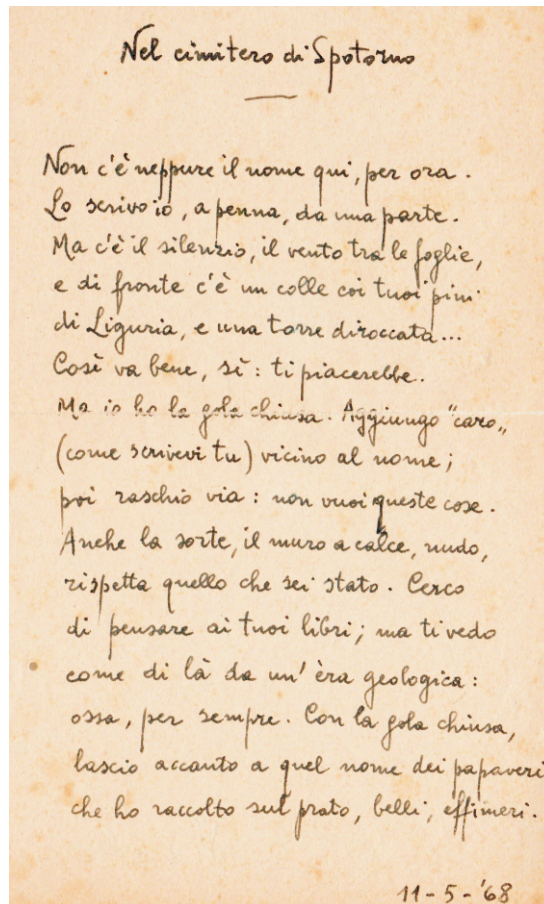 Nel cimitero di Spotorno
Non c'è neppure il nome qui, per ora.
Lo scrivo io, a penna, da una parte.
Ma c'è il silenzio, il vento tra le foglie,
e di fronte c'è un colle coi tuoi pini
di Liguria, e una torre diroccata...
Così va bene, sì: ti piacerebbe.
Ma io ho la gola chiusa. Aggiungo "caro„
(come scrivevi tu) vicino al nome;
poi raschio via: non vuoi queste cose.
Anche la sorte, il muro a calce, nudo,
rispetta quello che sei stato. Cerco
di pensare ai tuoi libri; ma ti vedo
come di là da un' èra geologica:
ossa, per sempre. Con la gola chiusa,
lascio accanto a quel nome dei papaveri
che ho raccolto sul prato, belli, effimeri.
11-5-'68